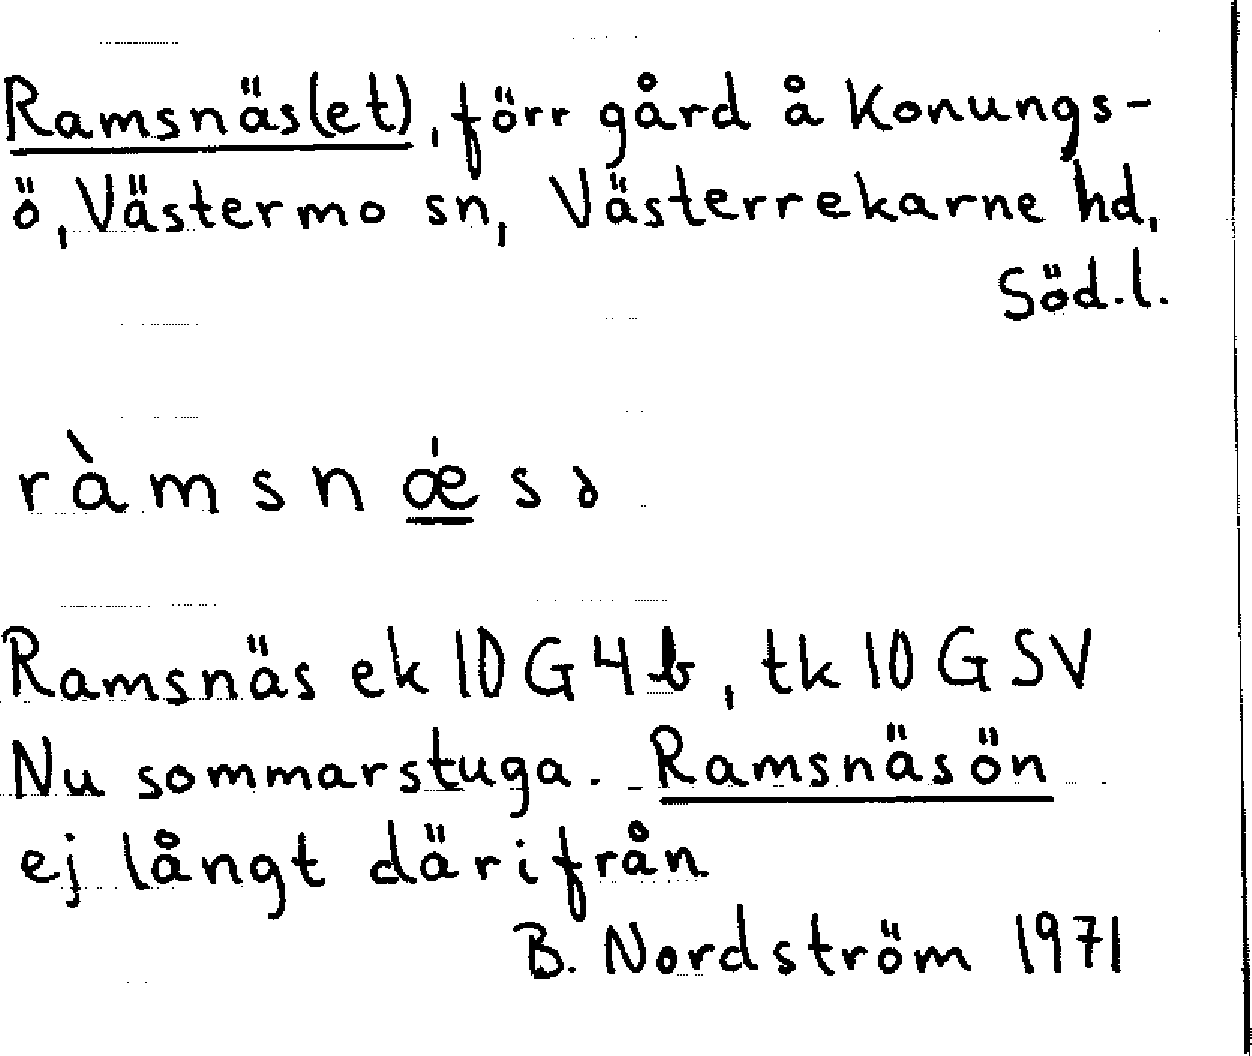 Ramsnäs(et), förr gård å Konungs-
ö, Västermo sn, Västerrekarne hd,
Söd.l.
ràmsnǽsꝺ
Ramsnäs ek 10G4b, tk 10GSV
Nu sommarstuga. Ramsnäsön
ej långt därifrån
B. Nordström 1971